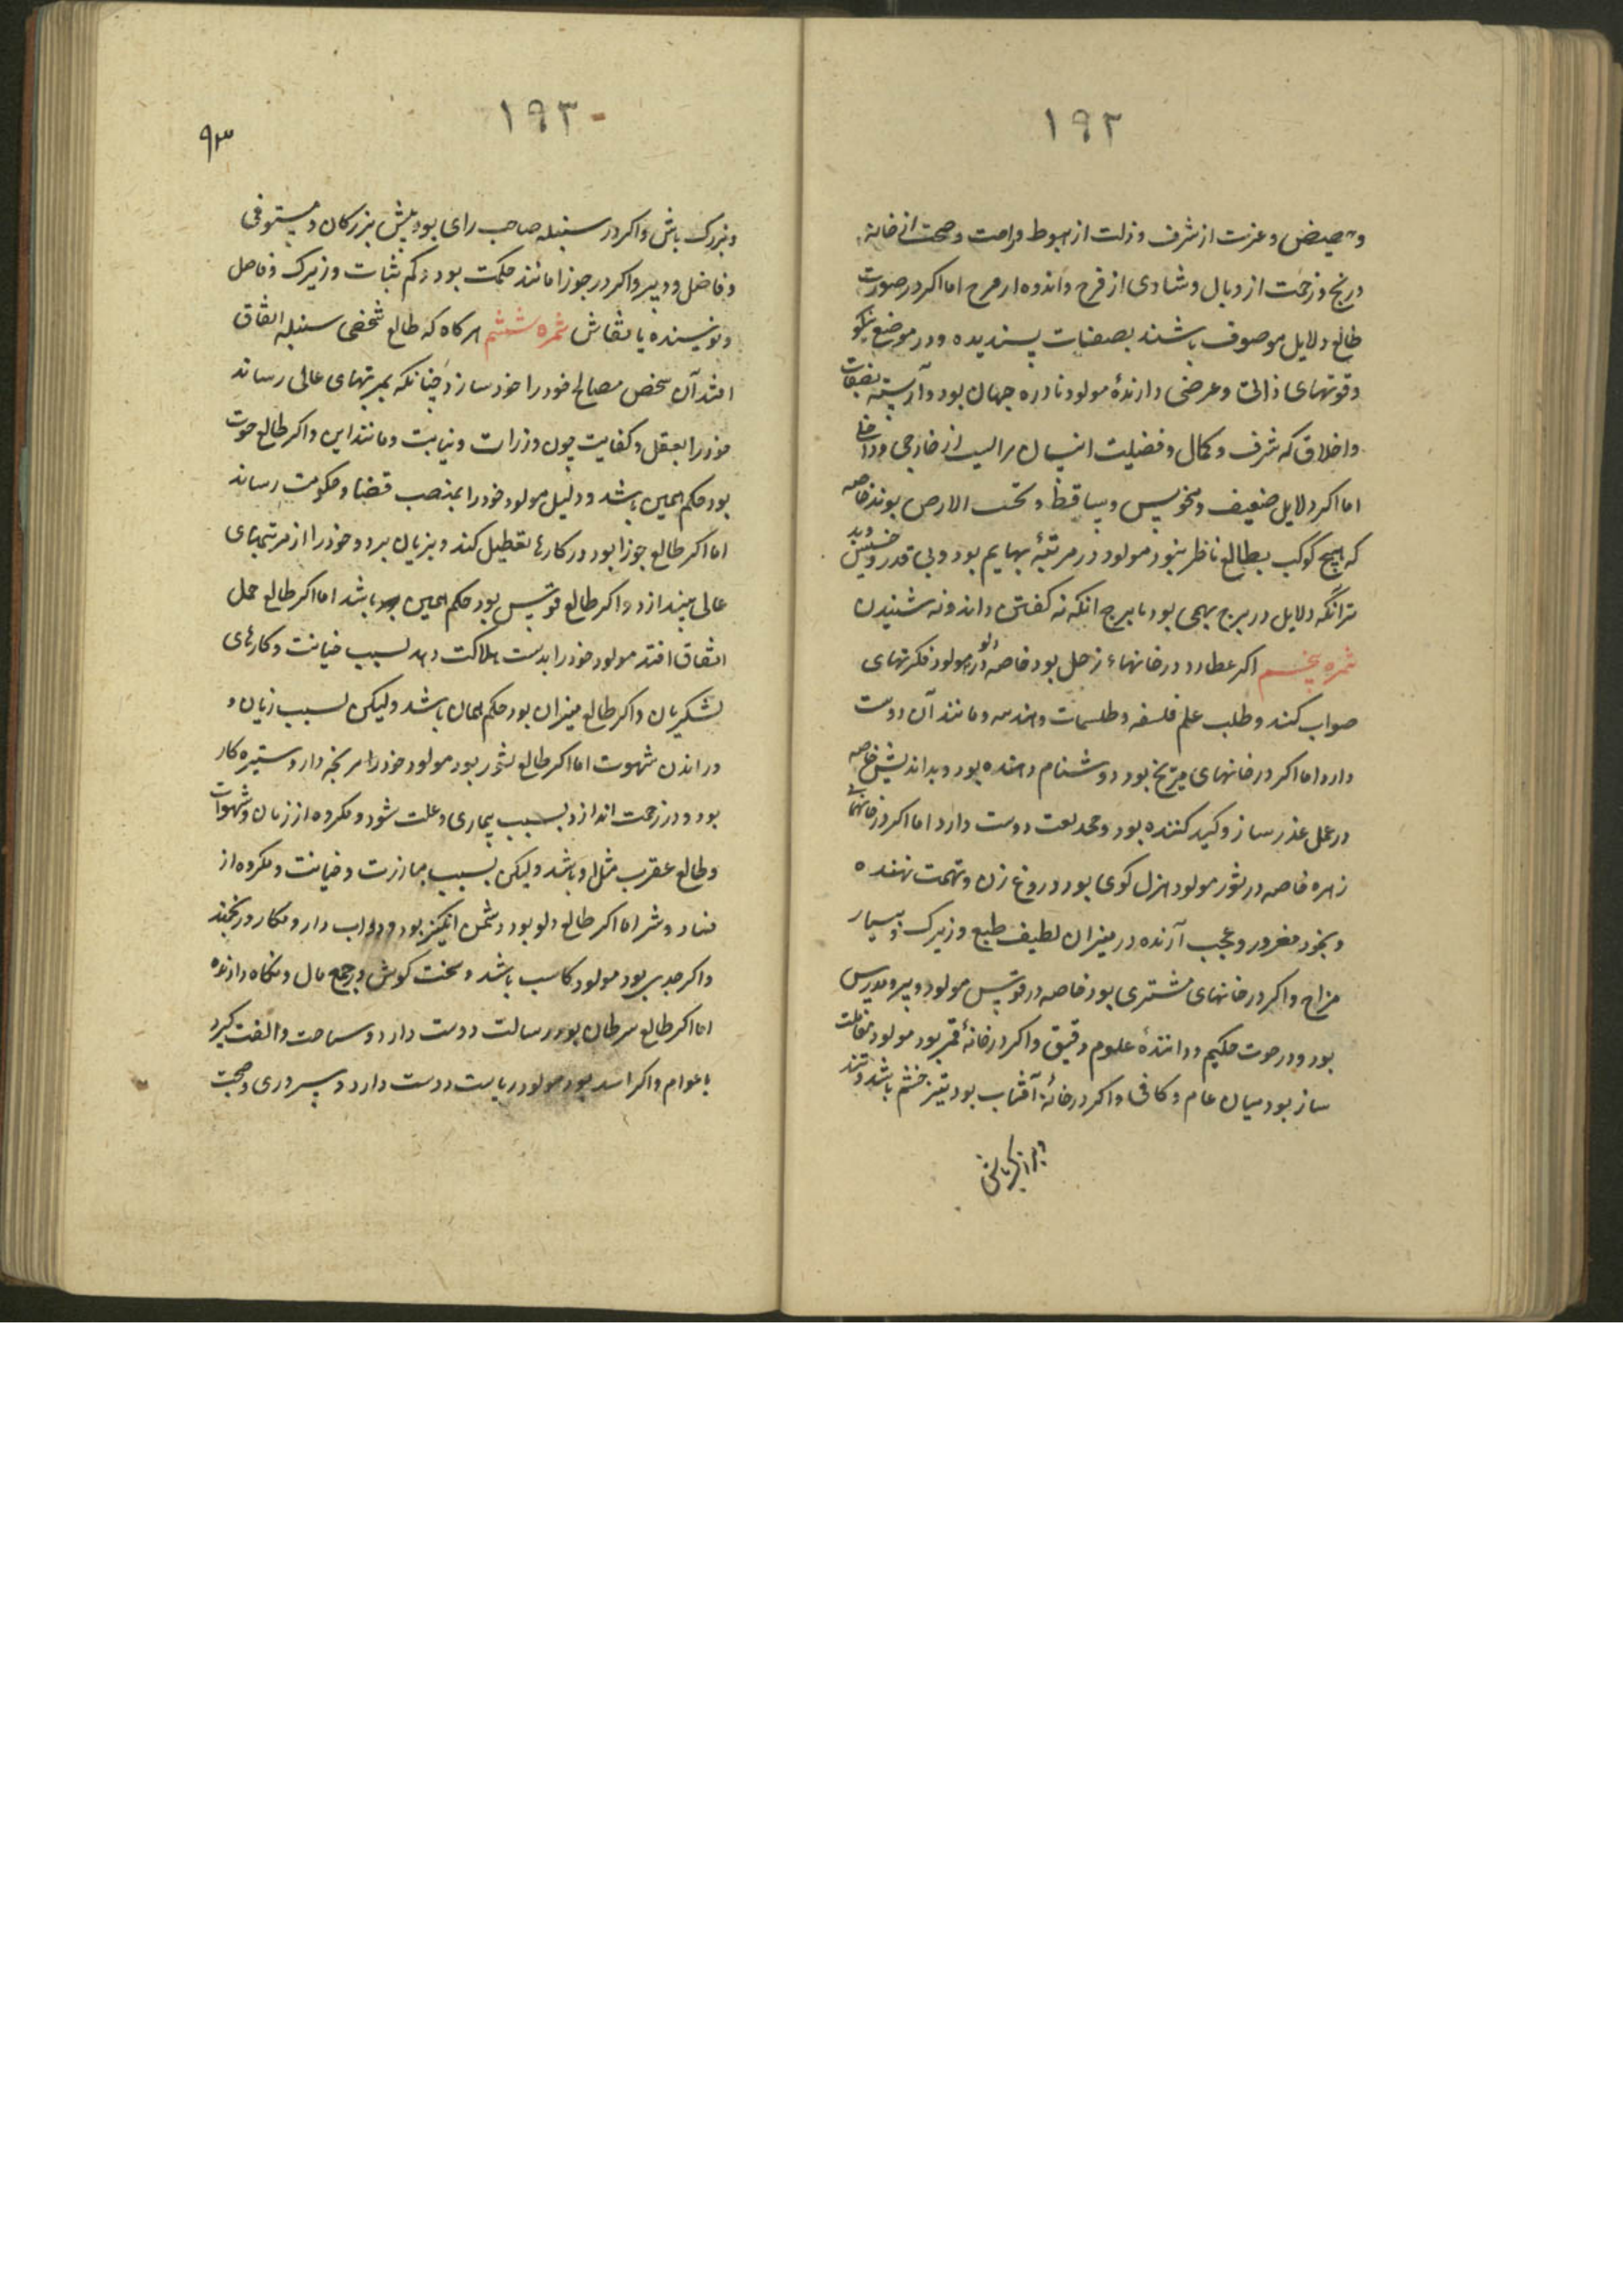 ١٩٢
و حضیض و عزت از شرف و ذلت از هبوط و راحت و صحت از خانه
و رنج و زحمت از وبال و شادی از فرح و اندوه از مرح اما اکر در صورت
طالع دلایل موصوف باشند بصفات پسندیده و در موضع نیکو
و قوتهای ذاتی و عرضی دارنده مولود نادره جهان بود و آراسته بصفات
و اخلاق که شرف و کمال و فضیلت انسان راست از خارجی و داخلی
اما اکر دلایل ضعیف و منحوس و ساقط و تحت الارض بوند خاصه
که هیچ کوکب بطالع ناظر نبود مولود در مرتبهٔ بهایم بود و بی قدر و خسیس و بد
تر آنکه دلایل در برج بهیمی بود یا برج انکه نه کفتن داند و نه شنیدن
ثمره پنجم اکر عطارد در خانهاء زحل بود خاصه در دلو مولود فکرتهای
صواب کند و طلب علم فلسفه و طلسمات و هندسه و مانند آن دوست
دارد اما اکر در خانهای مریخ بود دوشنام دهنده بود و بد اندیش خاصه
در حمل عذر ساز و کید کننده بود و محدلعت دوست دارد اما اکر در خانهای
زهره خاصه در ثور مولود هزل کوی بود و دروغ زن و تهمت نهنده
و بخود مغرور و عجب آرنده در میزان لطیف طبع و زیرک و بسیار
مزاح و اکر در خانهای مشتری بود خاصه در قوس مولود دبیر و مدرس
بود و در حوت حکیم و دانندهٔ علوم دقیق و اکر در خانهٔ قمر بود مولود
ساز بود میان عام و کافی و اکر در خانهٔ آفتاب بود تیز خشم باشد و تند
١٩٣
٩٣
و بزرک باش و اکر در سنبله صاحب رای بود پیش بزرکان و مستوفی
و فاضل و دبیر و اکر در جوزا مانند حکمت بود و کم ثبات و زیرک و فاضل
و نویسنده یا نقاش ثمره ششم هر کاه که طالع شخصی سنبله اتفاق
افتد آن شخص مصالح خود را خود سازد چنانکه بمرتبهای عالی رساند
خود را بعقل و کفایت چون وزرات و نیابت و مانند این و اکر طالع حوت
بود حکم همین باشد و دلیل مولود خود را بمنصب قضا و حکومت رساند
اما اکر طالع جوزا بود در کارها تعطیل کند و بزیان برد و خود را از مرتبهای
عالی بیندازد و اکر طالع قوس بود حکم همین باشد اما اکر طالع حمل
اتفاق افتد مولود خود را بدست هلاکت دهد بسبب خیانت و کارهای
لشکریان و اکر طالع میزان بود حکم همان باشد ولیکن بسبب زنان و
در اندن شهوت اما اکر طالع ثور بود مولود خود را مرنجه دارد و ستیزه کار
بود و در زحمت اندازد بسبب بیماری و علت شود و مکروه از زنان و شهوات
و طالع عقرب مثل او باشد ولیکن بسبب مبارزت و خیانت و مکروه از
فساد و شر اما اکر طالع دلو بود دشمن انکیز بود و دواب دار و مکار و رنجند
و اکر جدی بود مولود کاسب باشد و سخت کوش در جمع مال و نکاه دارنده
اما اکر طالع سرطان بود رسالت دوست دارد و سیاحت و الفت کیرد
با عوام و اکر اسد بود مولود ریاست دوست دارد و سروری و صحبت